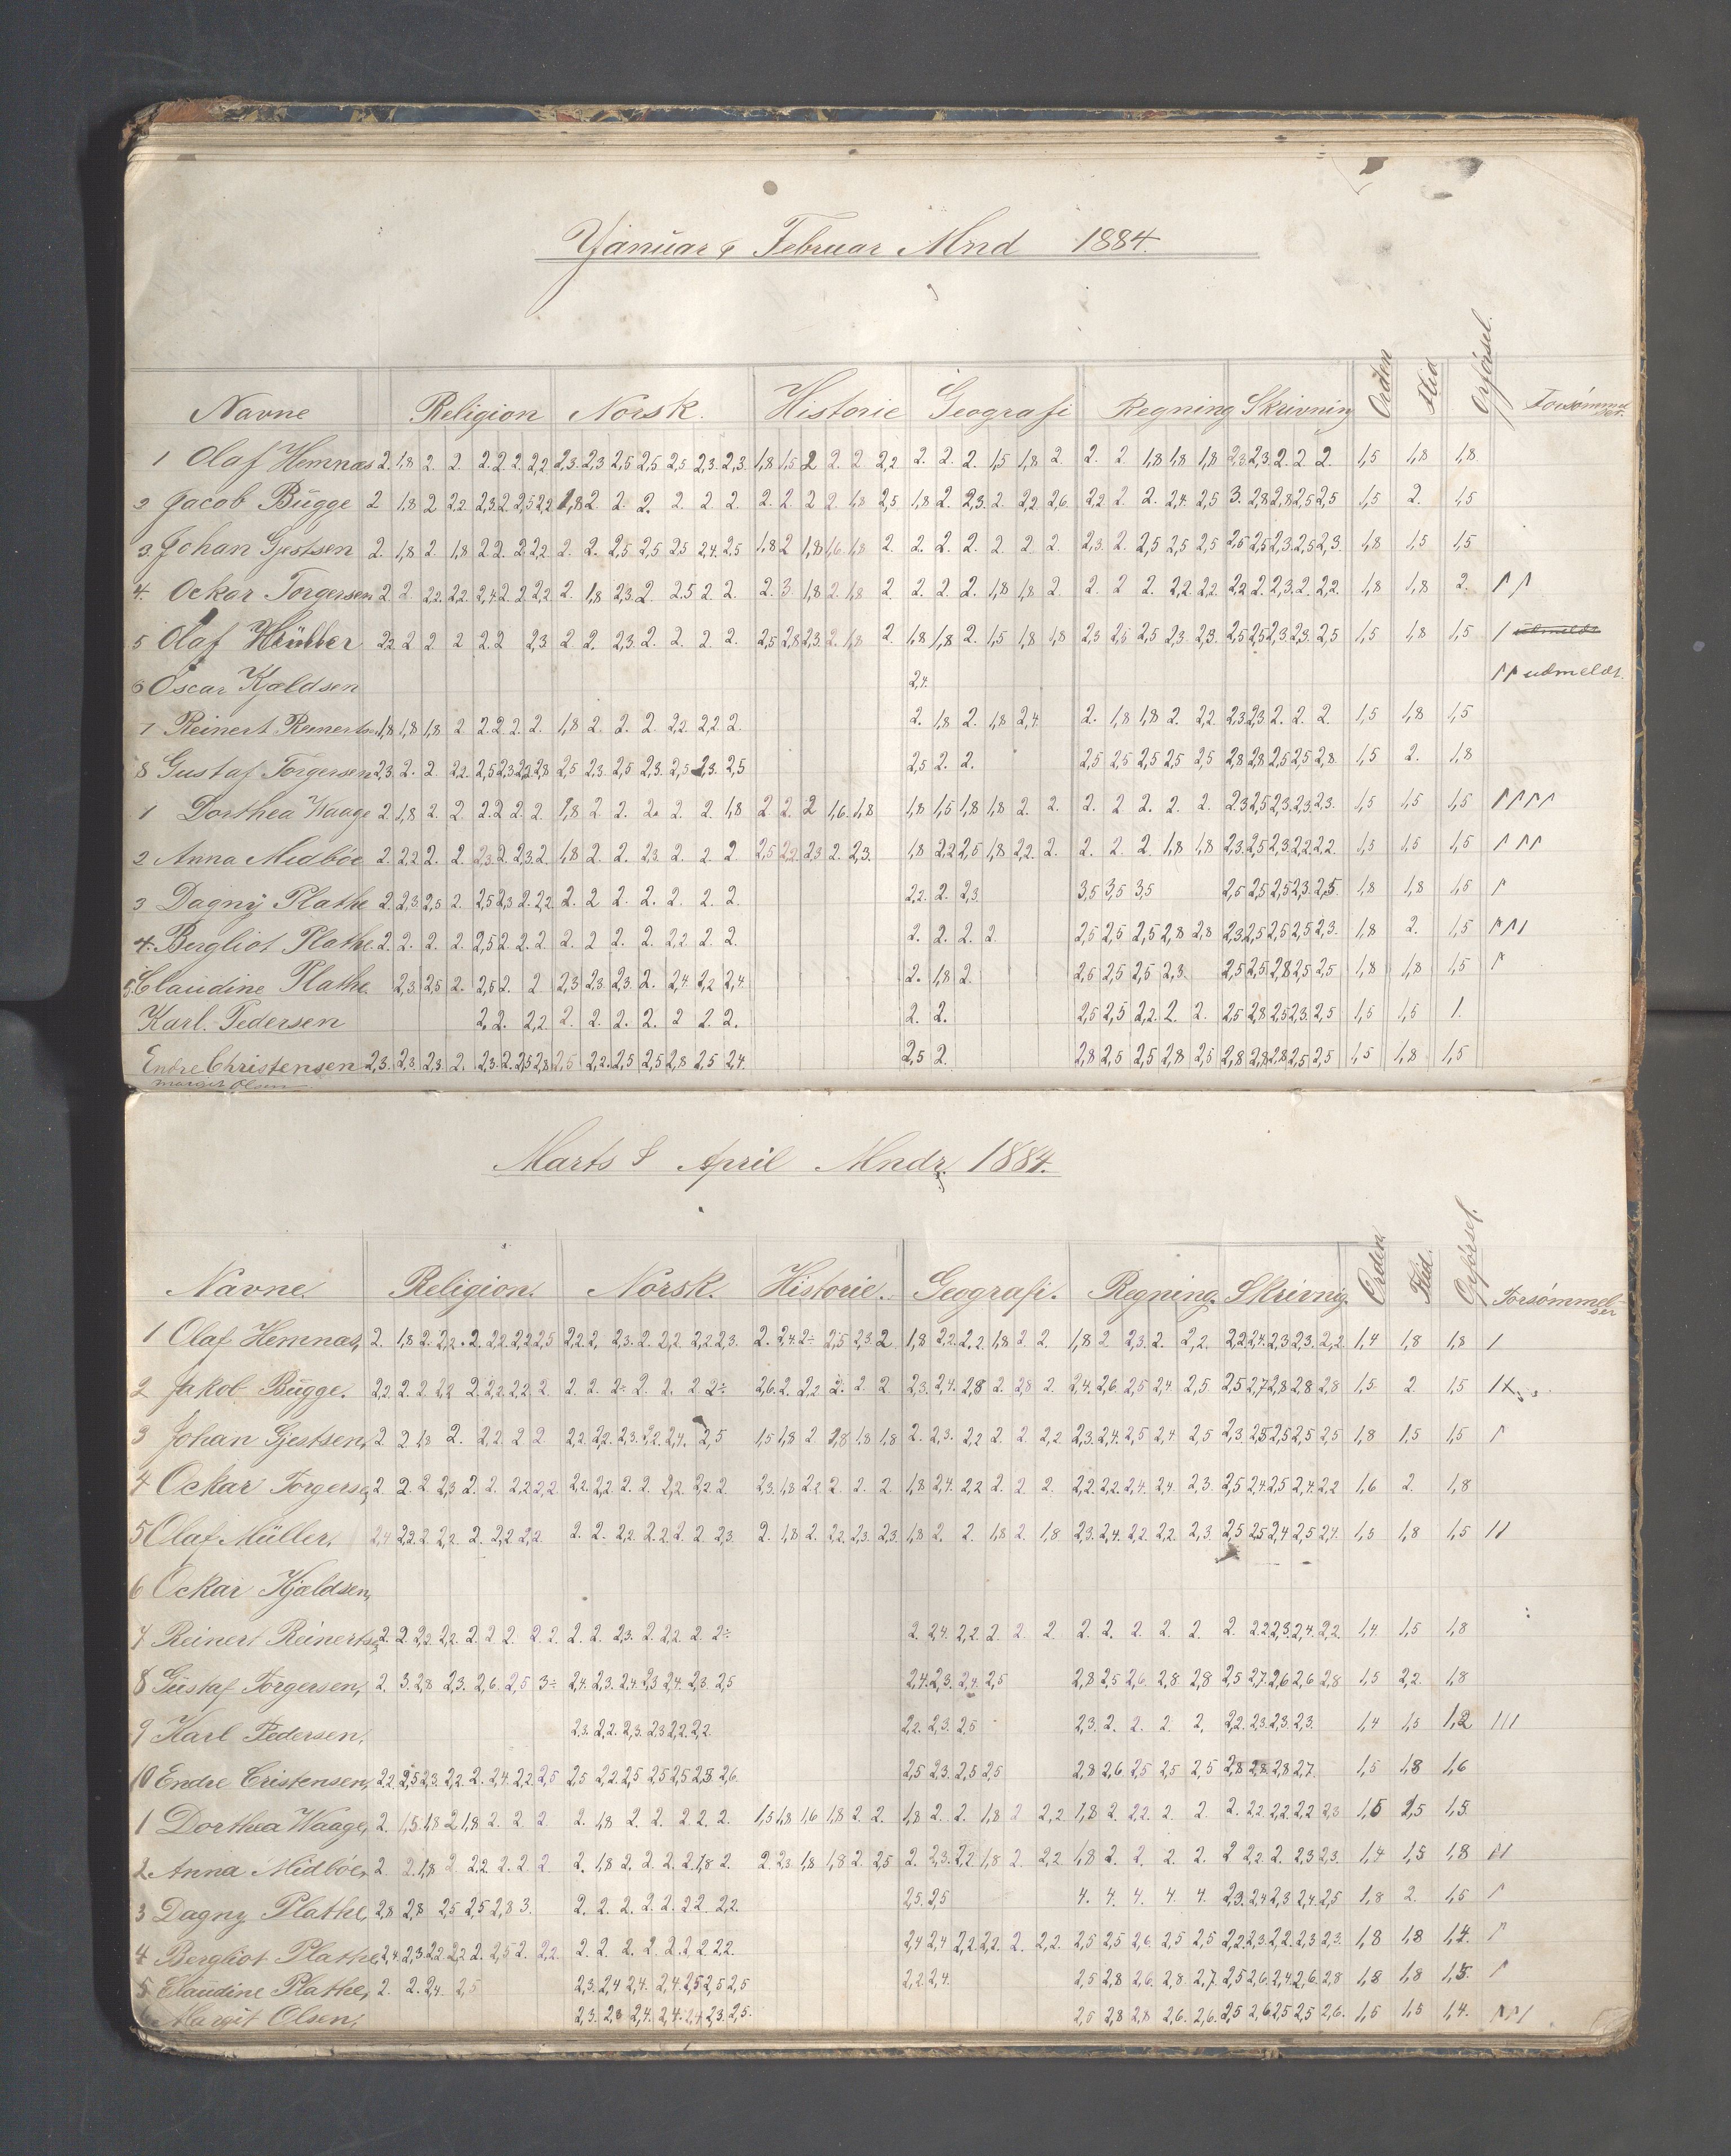 Januar & Februar Mnd 1884.
Navne Religion Norsk. Historie Geografi Regning Skrivning Orden Flid Opførsel. Forsømmelser.
1 Olaf Hemnæs 2. 1,8 2. 2. 2. 2 2. 2,2 2,3. 2,3 2,5 2,5 2,5 2,3. 2,3. 1,8 1,5 2 2. 2 2,2 2. 2. 2. 1,5 1,8 2. 2. 2 1,8 1,8 1,8 2,3 2,3 2. 2 2. 1,5 1,8 1,8
2 Jacob Bügge 2 1,8 2 2,2. 2,3 2. 2,5 2,2 1,8 2 2. 2. 2. 2 2. 2. 2 2 2. 1,8 2,5 1,8 2. 2,3. 2. 2,2. 2,6 2,2 2. 2. 2,4. 2,5 3. 2,8 2,8 2,5 2,5 1,5 2. 1,5
3. Johan Gjestsen 2. 1,8 2. 1,8 2 2. 2. 2,2 2. 2. 2,5 2,5 2,5 2,4. 2,5 1,8 2 1,8 1,6 1,8 2. 2. 2. 2. 2. 2. 2. 2,3. 2. 2,5 2,5 2,5 2,5 2,5 2,3. 2,5 2,3. 1,8 1,5 1,5
4. Ockar Torgersen 2 2. 2,2. 2,2. 2,4 2. 2 2,2 2. 1,8 2,3. 2. 2,5 2. 2. 2. 3. 1,8 2. 1,8 2. 2. 2. 2. 1,8 1,8 2 2. 2 2. 2,2. 2,2. 2,2 2. 2,3. 2. 2,2. 1,8 1,8 2.
5 Olaf Müller 2,2 2. 2 2 2. 2 2,3 2. 2. 2,3. 2. 2. 2. 2. 2,5 2,8 2,3. 2. 1,8 2. 1,8 1,8 2. 1,5 1,8 1,8 2,3 2,5 2,5 2,3. 2,3. 2,5 2,5 2,3. 2,3. 2,5 1,5 1,8 1,5 / udmeldt
6 Oscar Kjeldsen 2,4. udmeldt.
7 Reinert Reinertsen 1,8 1,8 1,8 2 2. 2. 2. 2. 1,8 2. 2. 2 2,2. 2,2 2. 2. 1,8 2. 1,8 2,4. 2. 1,8 1,8 2. 2,2. 2,3 2,3. 2. 2. 2. 1,5 1,8 1,5
8 Gustaf Torgersen 2,3. 2. 2. 2,2. 2,5 2,3 2,2 2,8 2,5 2,3. 2,5 2,3. 2,5 2,3. 2,5 2,5 2. 2. 2,5 2,5 2,5 2,5 2,5 2,8 2,8 2,5 2,5 2,8. 1,5 2. 1,8
1 Dorthea Waage 2. 1,8 2. 2. 2. 2 2. 2. 1,8 2. 2. 2. 2. 2. 1,8 2 2. 2 1,6. 1,8 1,8 1,5 1,8 1,8 2. 2. 2. 2 2. 2. 2. 2,3 2,5 2,3. 2,3. 2,3. 1,5 1,5 1,5
2 Anna Midbøe 2. 2,2 2. 2. 2,3 2. 2,3. 2. 1,8 2. 2. 2,3. 2. 2. 2. 2,5 2,2 2,3 2. 2,3. 1,8 2,2 2,5 1,8 2,2. 2. 2. 2. 2. 1,8 1,8 2,3. 2,5 2,3. 2,2 2,2. 1,5 1,5 1,5
3 Dagny Plathe 2. 2,3 2,5 2. 2,5 2,3 2. 2,2 2. 2 2. 2. 2. 2. 2. 2,2. 2. 2,3. 3,5 3,5 3,5 2,5 2,5 2,5 2,3. 2,5 1,8 1,8 1,5
4. Bergliot Plathe 2. 2. 2. 2. 2,5 2. 2. 2. 2. 2 2. 2. 2,2. 2. 2. 2. 2. 2. 2. 2,5 2,5 2,5 2,8 2,8 2,3 2,5 2,5 2,5 2,3. 1,8 2. 1,5
5. Claudine Plathe. 2,3. 2,5 2. 2,5 2. 2 2,3 2,3. 2,3. 2. 2,4. 2,2 2,4. 2. 1,8 2. 2,5 2,5 2,5 2,3. 2,5 2,5 2,8 2,5 2,5 1,8 1,8 1,5
Karl. Pedersen 2. 2. 2,2 2. 2. 2. 2. 2 2. 2. 2. 2. 2,5 2,5 2,2. 2. 2. 2,5 2,8 2,5 2,3. 2,5 1,5 1,5 1.
Endre Christensen 2,3. 2,3. 2,3. 2. 2,3. 2. 2,5 2,8 2,5 2,2. 2,5 2,5 2,8 2,5 2,4. 2,5 2. 2,8 2,5 2,5 2,8 2,5 2,8 2,8 2,8 2,5 2,5 1,5 1,8 1,5
Margit Olsen
Marts & April Mndr. 1884.
Navne. Religion. Norsk. Historie. Geografi. Regning. Skrivnig. Orden. Flid. Opførsel. Forsømmelser
1 Olaf Hemnæs, 2. 1,8 2. 2,2. 2. 2,2. 2,2 2,5 2,2 2. 2,3. 2. 2,2 2,2 2,3. 2. 2,4. 2÷ 2,5 2,3 2 1,8 2,2. 2,2. 1,8 2. 2. 1,8 2 2,3 2. 2,2. 2,2 2,4. 2,3 2,3. 2,2 1,4 1,8 1,8 /
2 Jakob Bügge. 2,2 2. 2 2,2 2. 2,2 2,2 2. 2. 2. 2÷ 2. 2. 2 2÷ 2,6. 2. 2,2 2. 2. 2 2,3. 2,4. 2,8 2. 2,8 2. 2,4. 2,6. 2,5 2,4. 2,5 2,5 2,7 2,8 2,8 2,8 1,5 2. 1,5
3 Johan Gjestsen, 2. 2 1,8 2. 2,2 2 2 2,2 2,2. 2,3. 2,2. 2,4. 2,5 1,5 1,8 2 1,8 1,8 1,8 2. 2,3. 2,2 2. 2 2,2 2,3. 2,4. 2,5 2,4. 2,5 2,3. 2,5 2,5 2,5 2,5 1,8 1,5 1,5
4 Ockar Torgersen 2. 2. 2 2,3 2. 2. 2,2 2,2. 2,2. 2,2 2. 2. 2,2. 2,2 2. 2,3. 1,8 2,2 2. 2. 2. 1,8 2,4. 2,2 2. 2 2. 2,2 2,2 2,4. 2,4. 2,3. 2,5 2,4 2,5 2,4. 2,2 1,6 2. 1,8
5 Olaf Müller, 2,4 2,2 2 2,2 2. 2,2 2,2 2. 2. 2,2 2. 2 2. 2. 2,3. 2. 1,8 2. 2,2. 2,3. 2,3. 1,8 2. 2. 1,8 2. 1,8 2,3. 2,4. 2,2 2,2. 2,3. 2,5 2,5 2,4 2,5 2,4. 1,5 1,8 1,5 //
6 Ockar Kjældsen,
7 Reinert Reinertsen 2. 2. 2,2. 2,2. 2. 2 2. 2. 2. 2. 2. 2,3. 2. 2,2. 2. 2÷ 2. 2,4. 2,2. 2. 2. 2. 2. 2. 2. 2. 2. 2. 2,2 2,3 2,4. 2,2. 1,4 1,5 1,8
8 Güstaf Torgersen, 2. 3. 2,8 2,3. 2,6. 2,5 3÷ 2,4. 2,3. 2,4 2,3 2,4. 2,3. 2,5 2,4. 2,3. 2,4. 2,5 2,8 2,5 2,6. 2,8 2,8 2,5 2,7. 2,6 2,6 2,8 1,5 2,2. 1,8
9 Karl Pedersen, 2,3. 2,2. 2,3. 2,3 2,2 2,2. 2,2. 2,3. 2,5 2,3. 2. 2. 2. 2, 2,2. 2,3. 2,3. 2,3. 1,4 1,5 1,2 ///
10 Endre Cristensen, 2,2. 2,5 2,3. 2,2. 2. 2,4. 2,2. 2,5 2,5. 2,2. 2,5 2,5 2,5 2,8 2,6. 2,5 2,3. 2,5 2,5 2,8 2,6. 2,5 2,5 2,5 2,8 2,8 2,8 2,7. 1,5 1,8 1,6
1 Dorthea Waage, 2. 1,5 1,8 2 1,8 2. 2. 2 2. 1,8 2. 2. 2. 2. 2. 1,5 1,8 1,6 1,8 2. 2. 1,8 2. 2. 1,8 2 2,2 1,8 2. 2,2. 2. 2. 2. 2,2. 2,2 2,2 2,3 1,5 1,5 1,5
2 Anna Midbøe, 2. 2. 1,8 2 2,2 2. 2. 2 2. 1,8 2. 2. 2. 2. 1,8 2. 2. 2,3 1,8 1,8 2. 2,5 2. 2,3. 2,2 1,8 2. 2,2 1,8 2. 2. 2. 2. 2 2,2. 2. 2,3 2,3. 1,4 1,5 1,8
3 Dagny Plathe, 2,8 2,8 2,5 2,5 2,8 3. 2. 2. 2. 2. 2. 2,2. 2,2. 2,5. 2,5 4. 4. 4. 4. 4. 2,3. 2,4 2,3 2,4. 2,5 1,8 2. 1,5
4 Bergliot Plathe, 2,4. 2,3. 2,2 2,2 2. 2,5 2. 2,2 2. 2. 2. 2. 2. 2. 2 2,2. 2,4 2,4 2,2 2,2. 2. 2,2. 2,5 2,5 2,6. 2,5 2,5 2,2 2,3. 2,2. 2,3 2,3. 1,8 1,8 1,4.
5 Claüdine Plathe, 2. 2. 2,4. 2,5 2,3. 2,4 2,4. 2,4. 2,5 2,5 2,5 2,2 2,4. 2,5 2,8 2,6. 2,8. 2,7. 2,5 2,6. 2,4 2,6. 2,8 1,8 1,8 1,5.
6 Margit Olsen, 2,3. 2,8 2,4. 2,4. 2,4 2,3. 2,5. 2,5 2,8 2,8 2,6. 2,6. 2,5 2,6 2,5 2,5 2,6. 1,5 1,5 1,4.